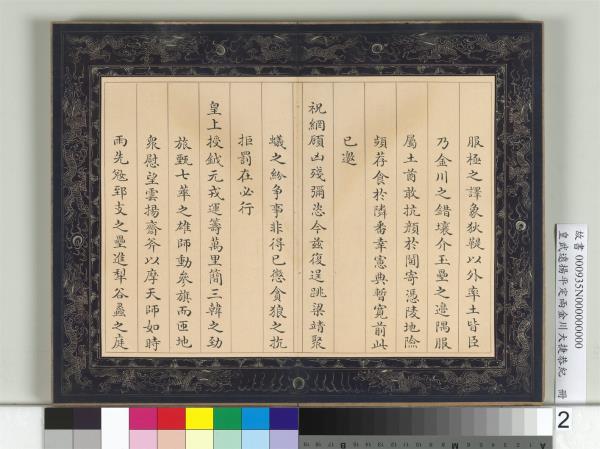 服極之譯象狄鞮以外率土皆臣
乃金川之錯壤介玉壘之邊隅服
屬土酋敢抗顏於閫寄憑陵地險
頻荐食於隣番幸憲典暫寬前此
已邀
祝網顧凶殘彌恣今茲復逞跳梁靖聚
蟻之紛爭事非得已懲貪狼之抗
拒罰在必行
皇上授鉞元戎運籌萬里簡三韓之勁
旅甄七萃之雄師動參旗而匝地
衆慰望雲揚齋斧以摩天師如時
雨先殄郅支之壘進犁谷蠡之庭
故書 000935N000000000
皇武遠揚平定兩金川大捷恭紀 冊
2